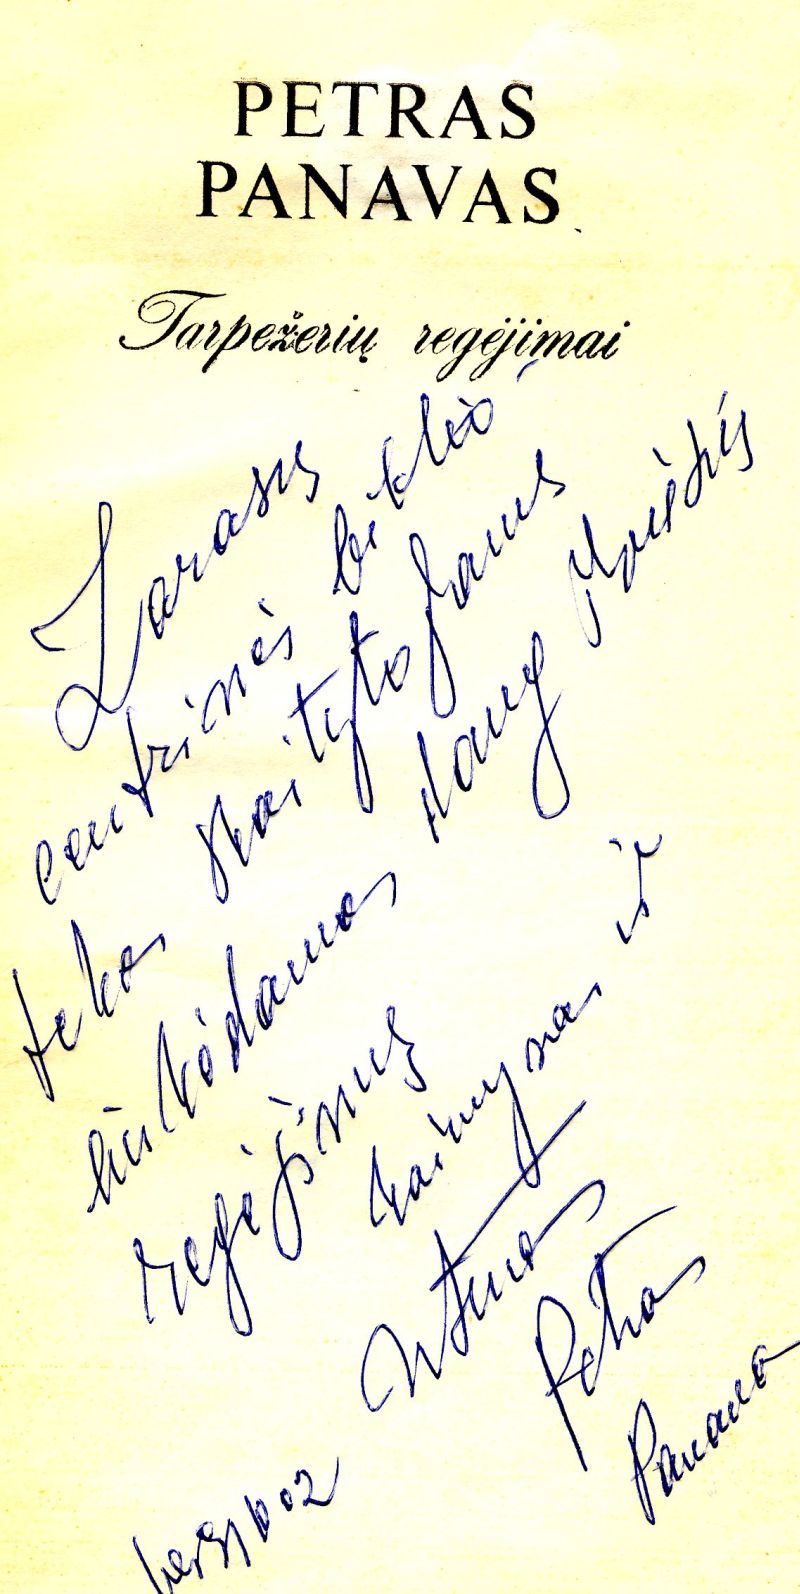 PETRAS
PANAVAS
Tarpežerių regėjimai
Zarasų
centrinės biblio
tekos skaitytojams
linkėdamas daug
regėjimų
kaimynas ir
Petras
Panavas